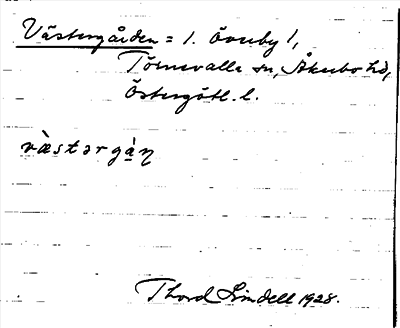 Västergården = 1. Öveby 1,
Törnevalla sn, Åkerbo hd,
Östergötl. l.
væ̀stərgàṇ
Thord Lindell 1928.